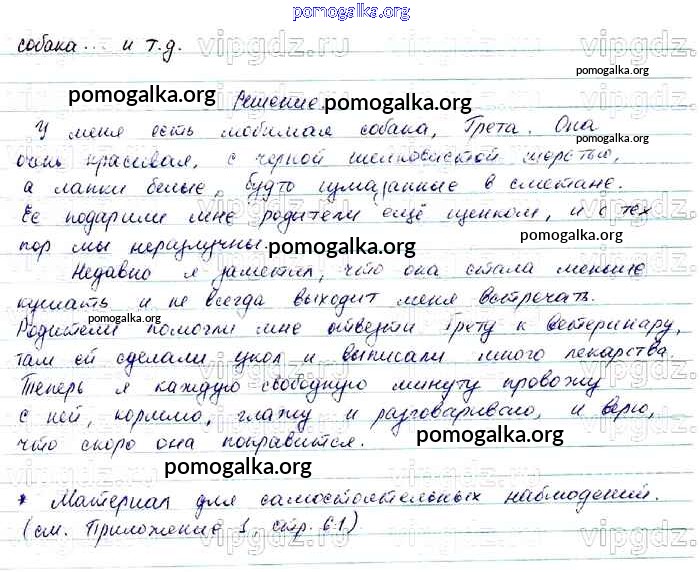 pomogalka.org
собака... и т.д.
Решение.
У меня есть любимая собака, Грета. Она
очень красивая, с черной шелковистой шерстью,
а лапки белые, будто измазанные в сметане.
Её подарили мне родители ещё щенком, и с тех
пор мы неразлучны.
Недавно я заметил, что она стала меньше
кушать и не всегда выходит меня встречать.
Родители помогли мне отвезти Грету к ветеринару,
там ей сделали укол и выписали много лекарства.
Теперь я каждую свободную минуту провожу
с ней, кормлю, глажу и разговариваю, и верю,
что скоро она поправится.
* Материал для самостоятельных наблюдений.
(см. Приложение 1, стр. 61)
pomogalka.org
pomogalka.org
pomogalka.org
pomogalka.org
pomogalka.org
pomogalka.org
pomogalka.org
pomogalka.org
pomogalka.org
vipgdz.ru